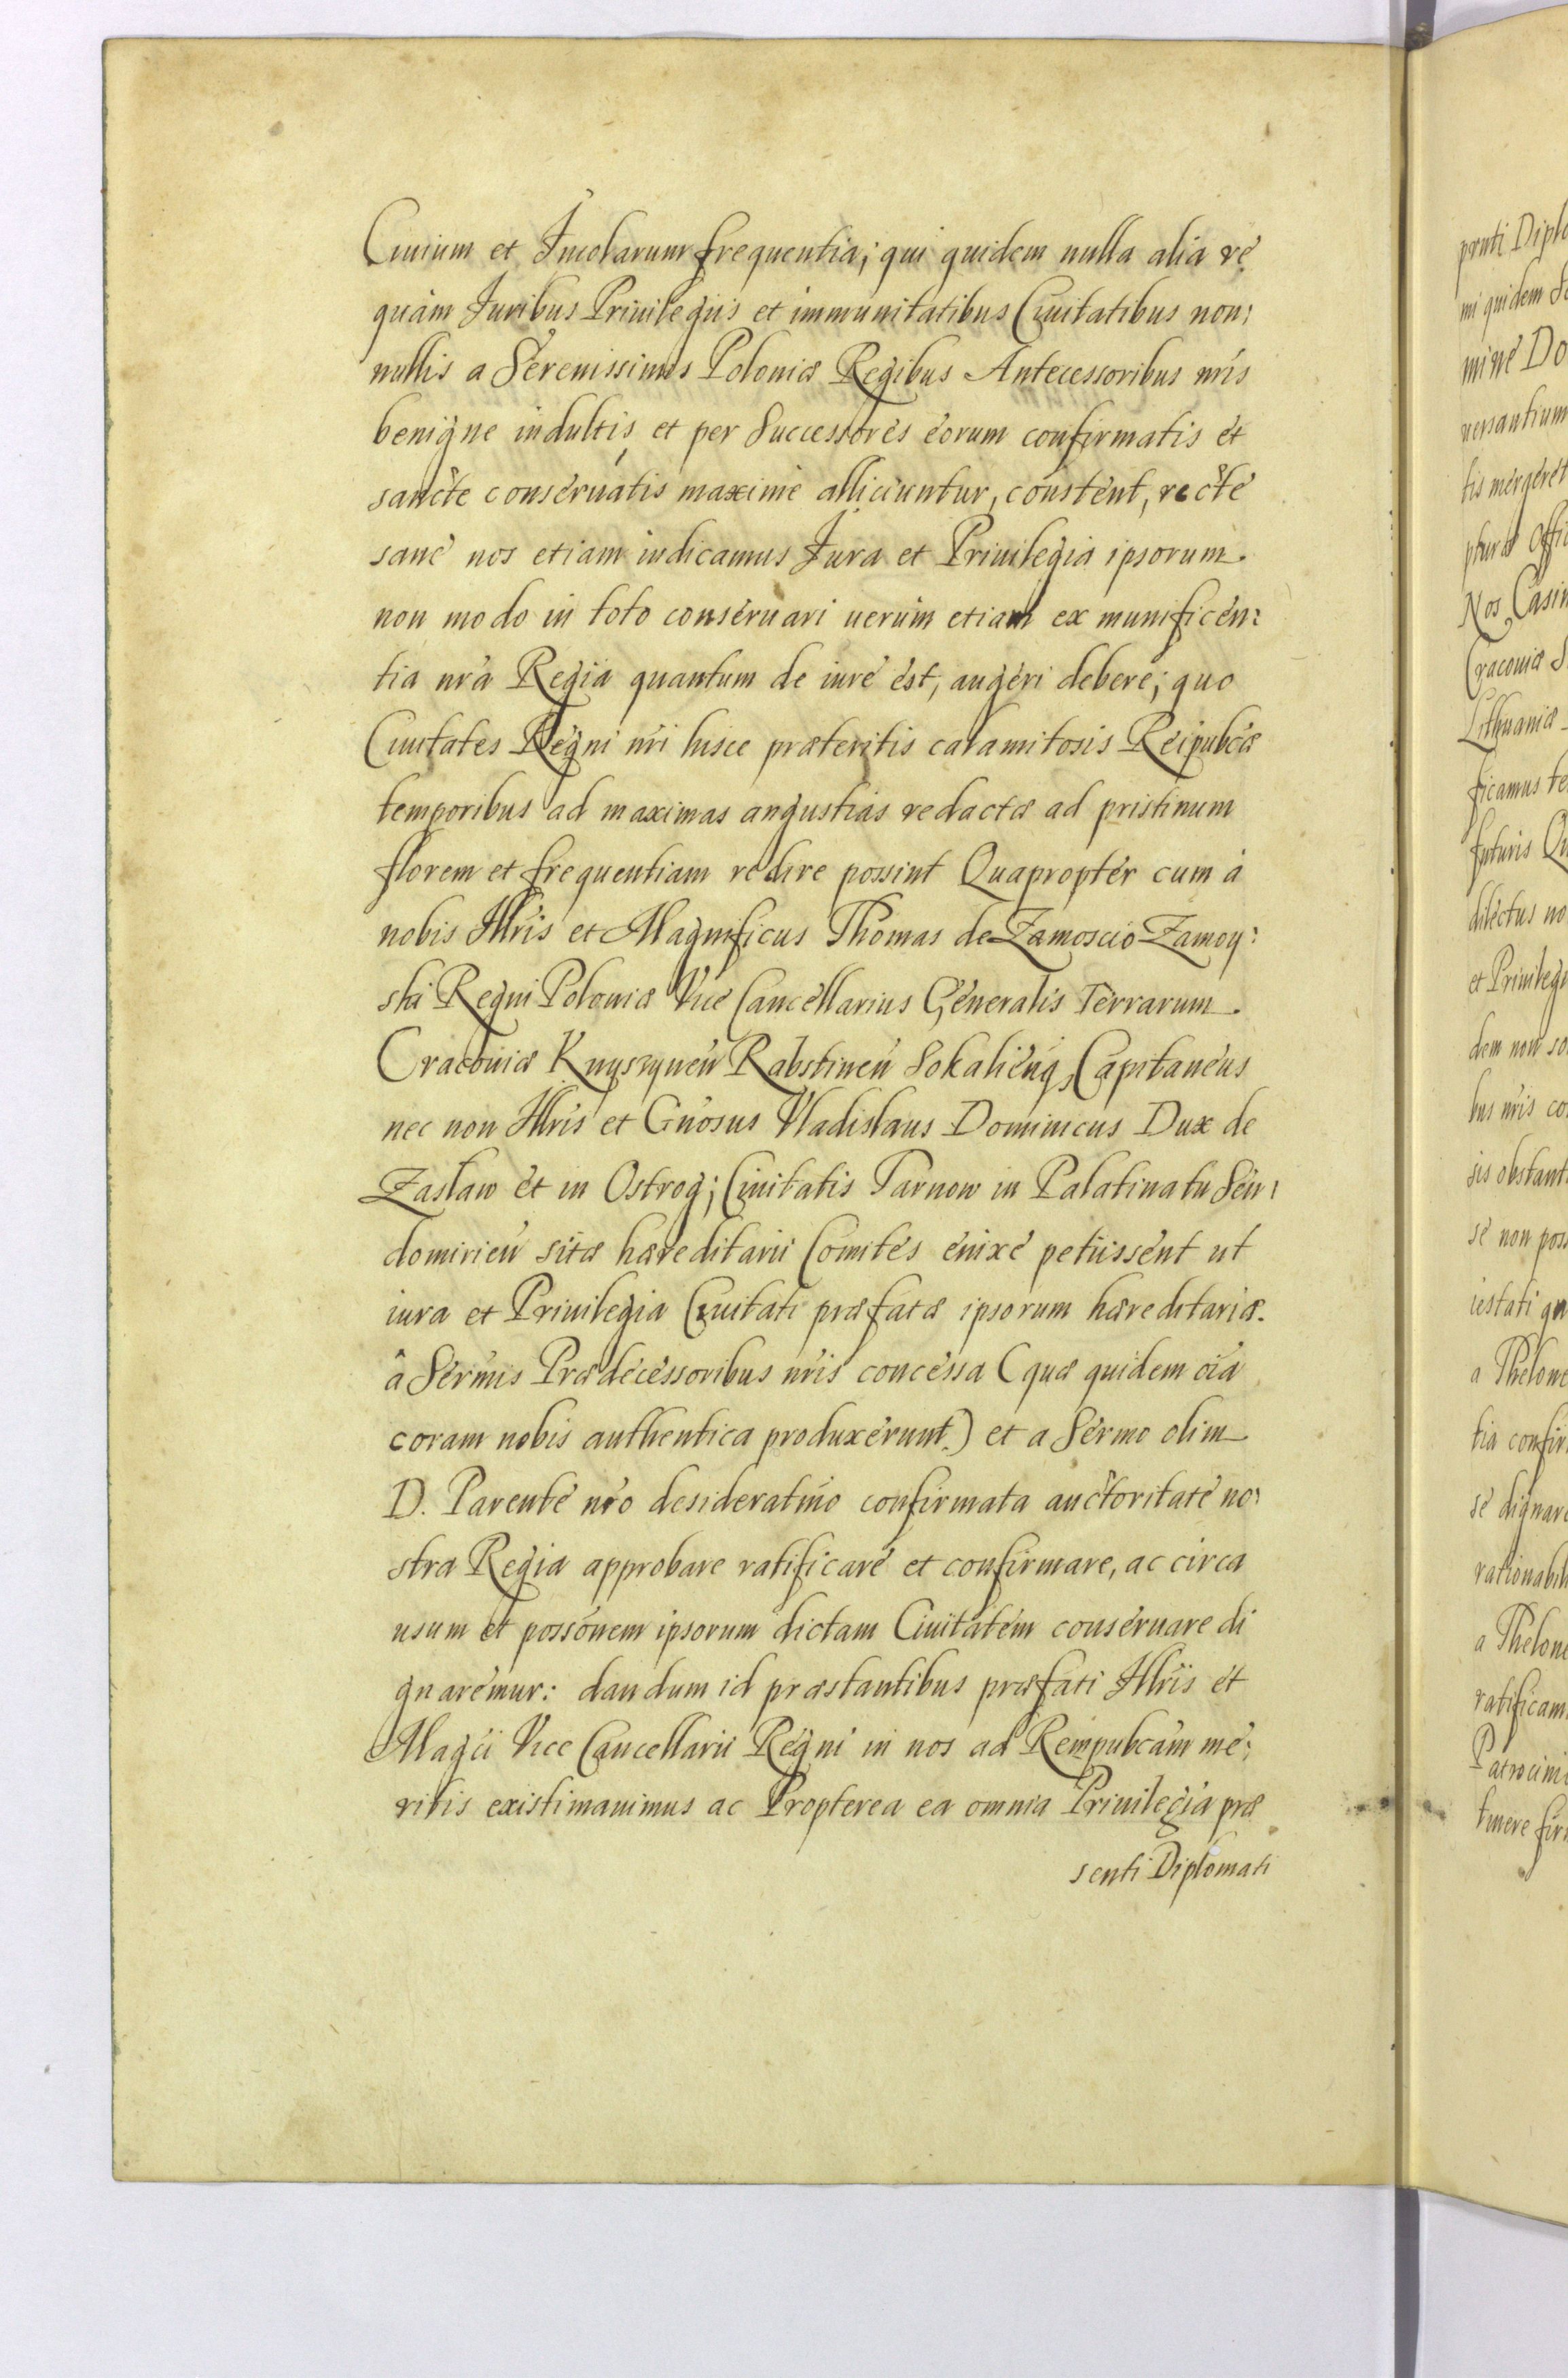 Ciuium et Incolarum frequentia; qui quidem nulla alia re
quàm Iuribus Priuilegiis et immunitatibus Ciuitatibus non:
nullis a Serenissimis Poloniæ Regibus Antecessoribus nris
benigne indultis et per Successores eorum confirmatis et
sancte conseruatis maxime alliciuntur, constent, recte
sane nos etiam iudicamus Iura et Priuilegia ipsorum
non modo in toto conseruari uerùm etiam ex munificen:
tia nrà Regià quantum de iure est, augeri debere; quo
Ciuitates Regni nri hisce præteritis calamitosis Reipubcæ
temporibus ad maximas angustias redactæ ad pristinum
florem et frequentiam redire possint Quapropter cum à
nobis Illris et Magnificus Thomas de Zamoscio Zamoy:
ski Regni Poloniæ Vice Cancellarius Generalis Terrarum
Cracouiæ Knyszynen Rabstinen Sokalienq, Capitaneus
nec non Illris et Gnosus Vladislaus Dominicus Dux de
Zaslaw et in Ostrog; Ciuitatis Tarnow in Palatinatu Sen:
domirien sitæ hæreditarii Comites enixe petiissent ut
iura et Priuilegia Ciuitati præfatæ ipsorum hæreditariæ
â Sermis Prædecessoribus nris concessa (quæ quidem oia
coram nobis authentica produxerunt.) et a Sermo olim
D. Parente nro desideratmo confirmata auctoritate no:
stra Regia approbare ratificare et confirmare, ac circa
usum et possonem ipsorum dictam Ciuitatem conseruare di
gnaremur: dandum id præstantibus præfati Illris et
Magci Vice Cancellarii Regni in nos ad Rempubcam me:
ritis existimauimus ac Propterea ea omnia Priuilegia præ
senti Diplomati